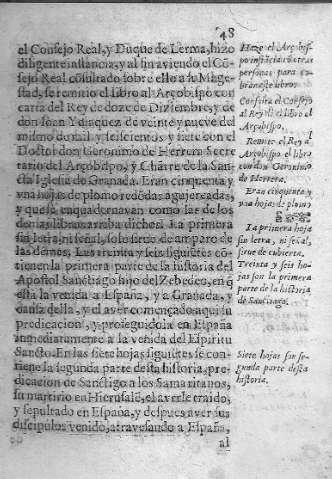 48
el Consejo Real, y Duque de Lerma, hizo
diligente instancia, y al fin aviendo el Cõ-
sejo Real cõsultado sobre ello a su Mage-
stad, se remitio el libro al Arçobispo con
carta del Rey de doze de Diziembre, y de
don Ioan Ydiaquez de veinte y nueve del
mismo de mil y seiscientos y siete con el
Doctor don Geronimo de Herrera Secre
tario del Arçobispo, y Chãtre de la San-
cta Iglesia de Granada. Eran cinquenta y
vna hojas de plomo redõdas agujereadas,
y que se enquadernavan como las de los
demas libros arriba dichos. La primera
sin letra, ni señal, solo sirve de amparo de
las demas. Las treinta y seis siguiẽtes cõ-
tienen la primera parte de la historia del
Apostol Sanctiago hijo del Zebedeo, en q̃
esta la venida a España, y a Granada, y
causa della, y el aver començado aqui su
predicacion, y prosiguidola en España
immediatamente a la venida del Espiritu
Sancto. En las siete hojas siguiẽtes se con-
tiene la segunda parte desta historia, pre-
dicacion de Sanctigo a los Samaritanos,
su martyrio en Hierusalẽ, el averle traido,
y sepultado en España, y despues aver sus
discipulos venido, atravesando a España,
al
Haze el Arçobis-
po instãcia cõ otras
personas para co-
brar este libro.
Consulta el Consejo
al Rey si el libro al
Arçobispo.
Remite el Rey a
Arçobispo el libro
con don Geronimo
de Herrera.
Eran cinquenta y
vna hojas de plomo
La primera hoja
sin letra, ni señal,
sirue de cubierta.
Treinta y seis ho-
jas son la primera
parte de la historia
de Sanctiago.
Siete hojas son se-
gunda parte desta
historia.